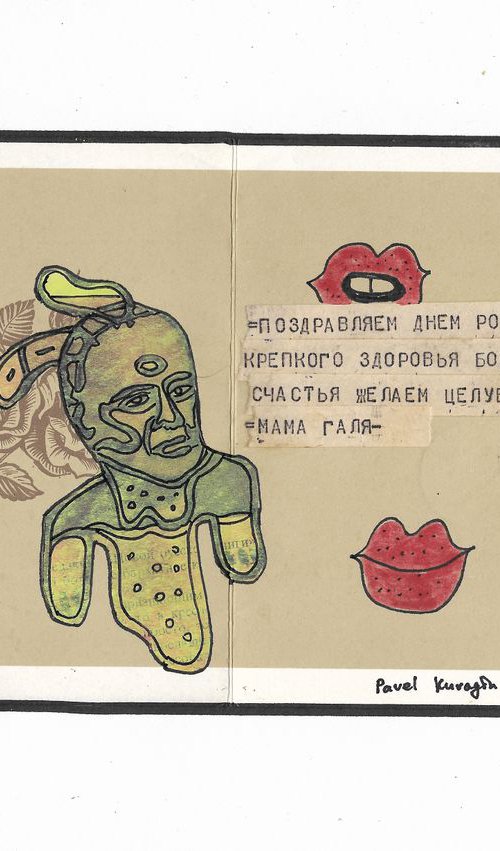 =ПОЗДРАВЛЯЕМ ДНЕМ РО
КРЕПКОГО ЗДОРОВЬЯ БО
СЧАСТЬЯ ЖЕЛАЕМ ЦЕЛУЕ
=МАМА ГАЛЯ-
Pavel Kuragin